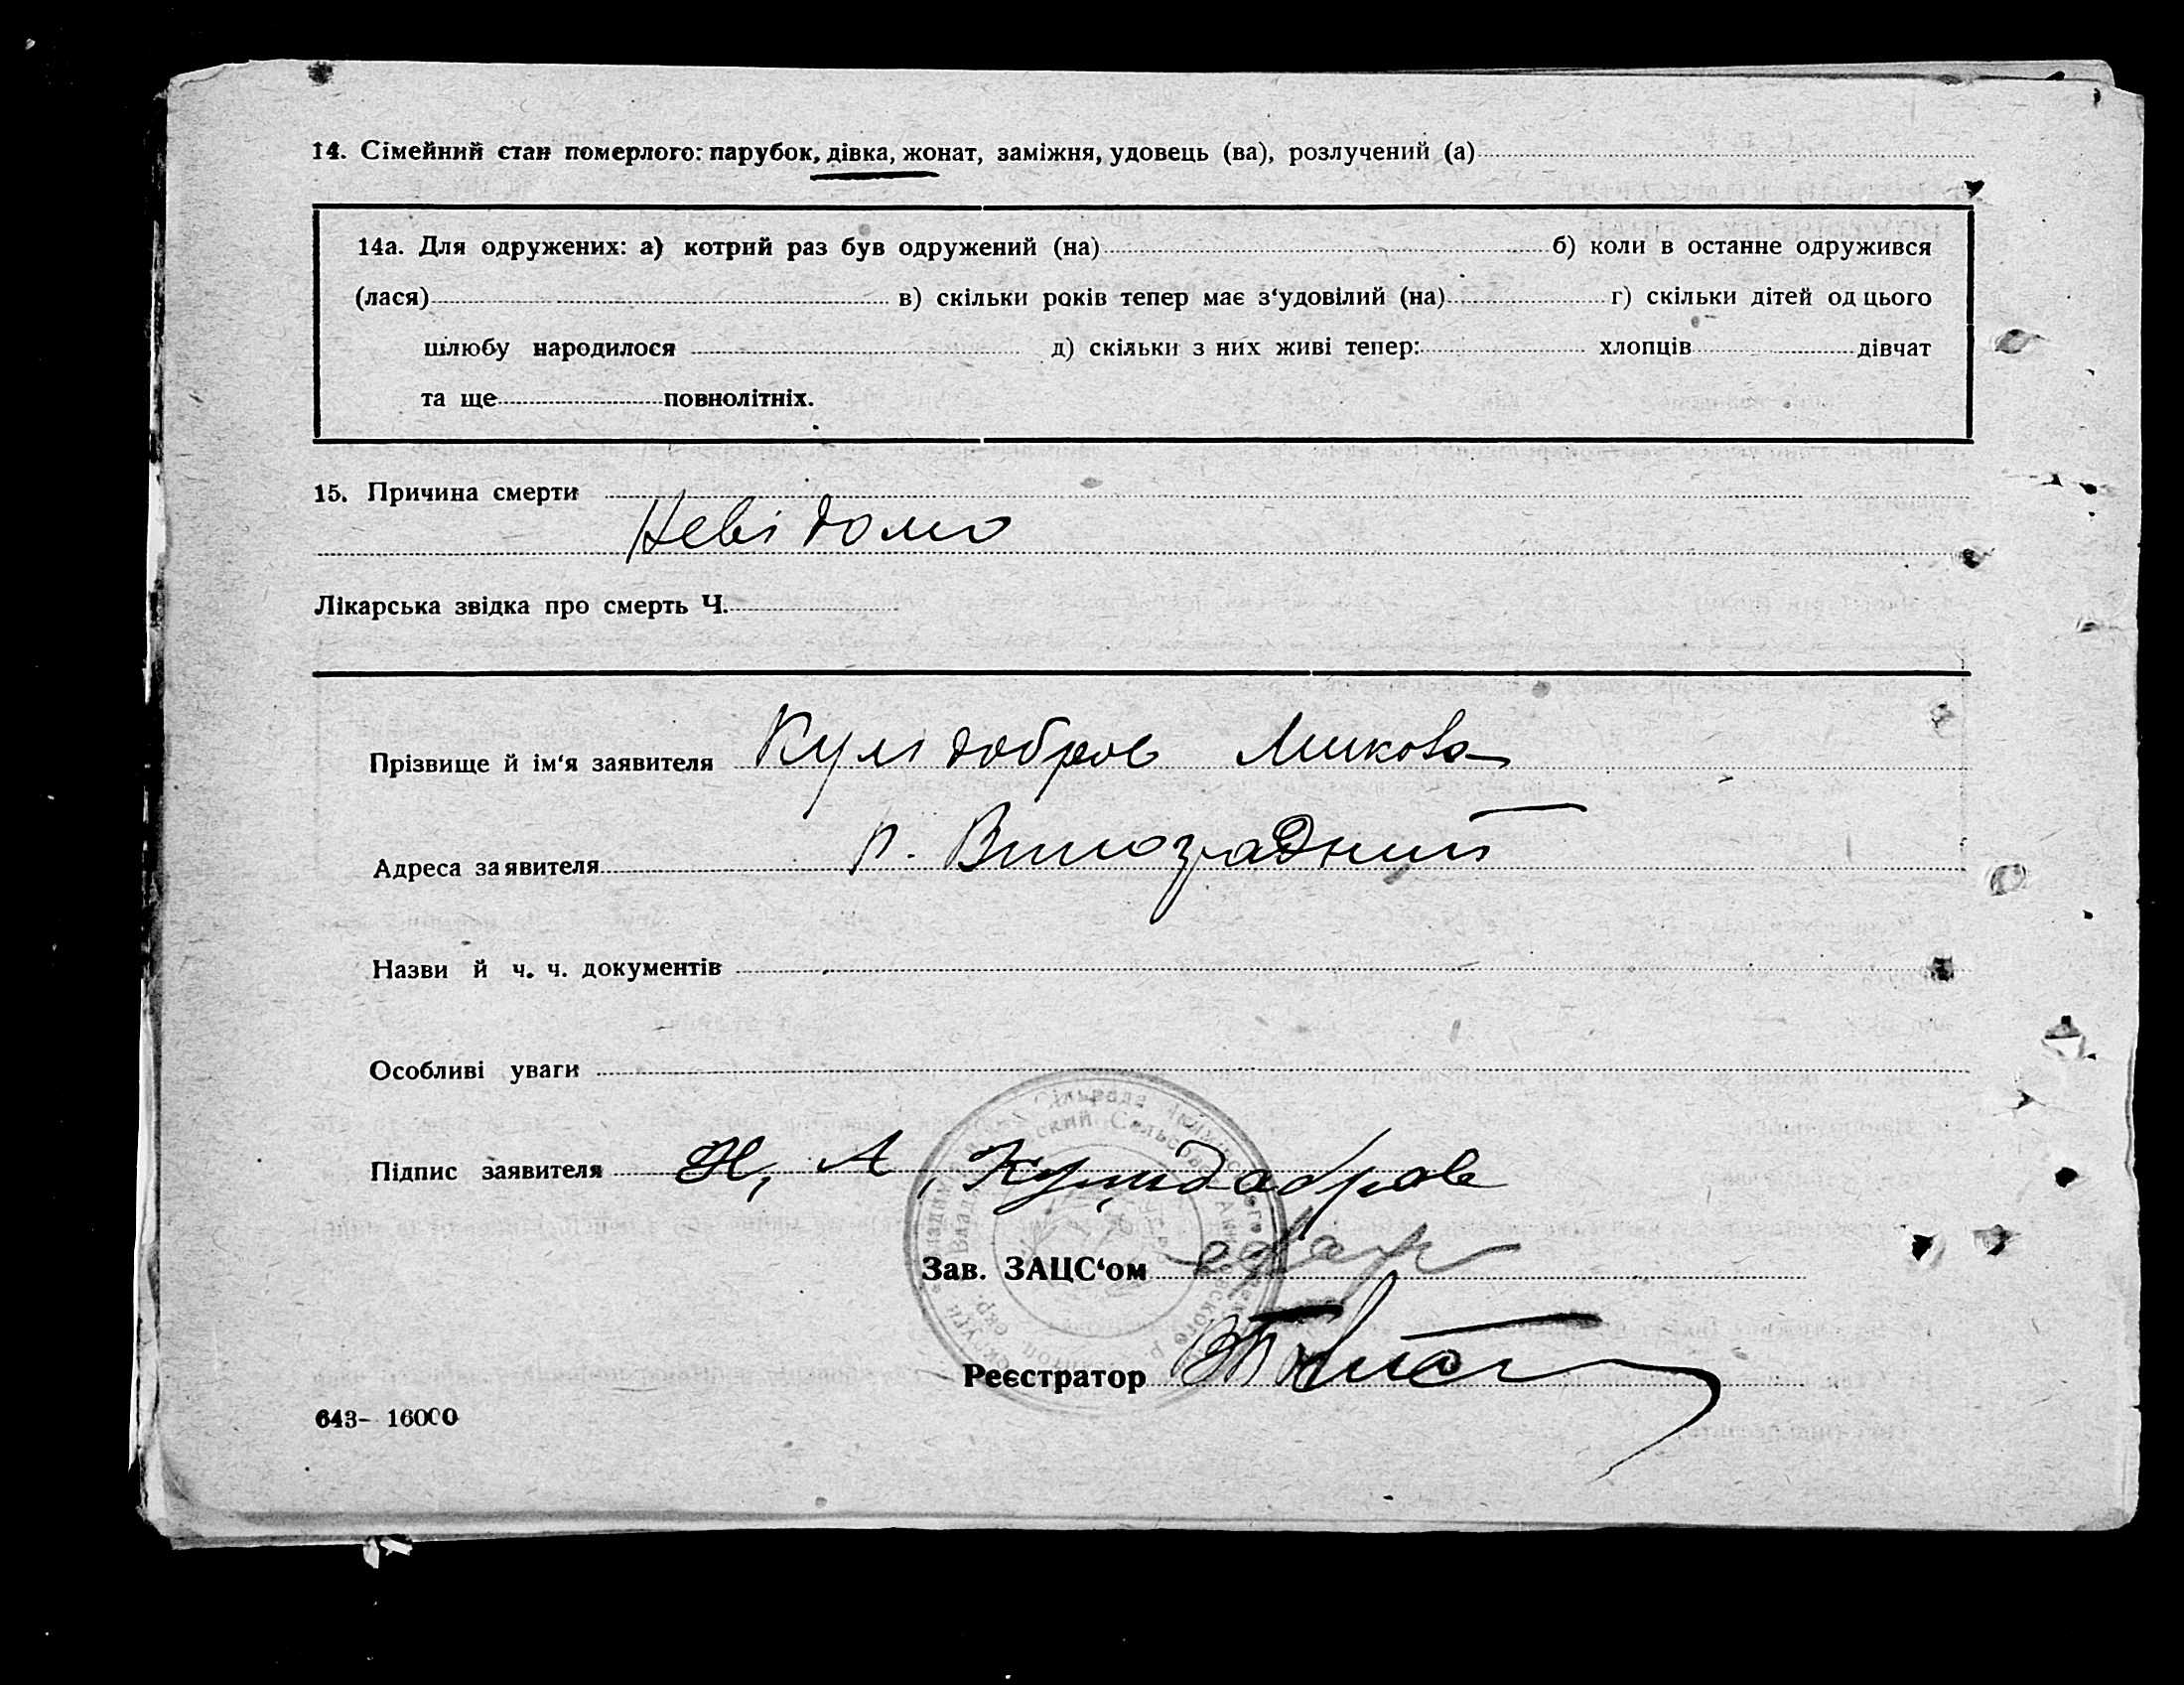 14. Сімейний стан померлого: парубок, дівка, жонат, заміжня, удовець (ва), розлучений (а)
14а. Для одружених: а) котрий раз був одружений (на) б) коли в останне одружився
(лася) в) скільки років тепер має з‘удовілий (на) г) скільки дітей од цього
шлюбу народилося д) скільки з них живі тепер: хлопців дівчат
та ще повнолітніх.
15. Причина смерти
Невідомо
Лікарська звідка про смерть Ч.
Прізвище й ім‘я заявителя Кулідобров Микола
Адреса заявителя р. Виноградний
Назви й ч. ч. документів
Особливі уваги
Підпис заявителя Н, А, Кулидобров
Зав. ЗАЦС‘ом
Реєстратор
643- 16000